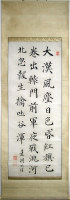 大漠風塵日色昏紅旗半
卷出轅門前軍夜戰洮河
北已報生擒吐谷渾